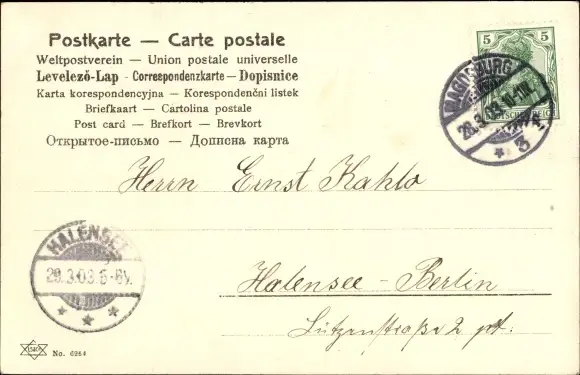 Postkarte — Carte postale
Weltpostverein — Union postale universelle
Levelező-Lap - Correspondenzkarte — Dopisnice
Karta korespondencyjna — Korespondenční listek
Briefkaart — Cartolina postale
Post card — Brefkort — Brevkort
Открытое-письмо — Дописна карта
5 5
DEUTSCHES REICH
MAGDEBURG
28.3.03.10-11
3
Herrn Ernst Kahlo
HALENSEE
29.3.03.6-
Halensee-Berlin
Lützenstraße 2 pt.
No. 6264